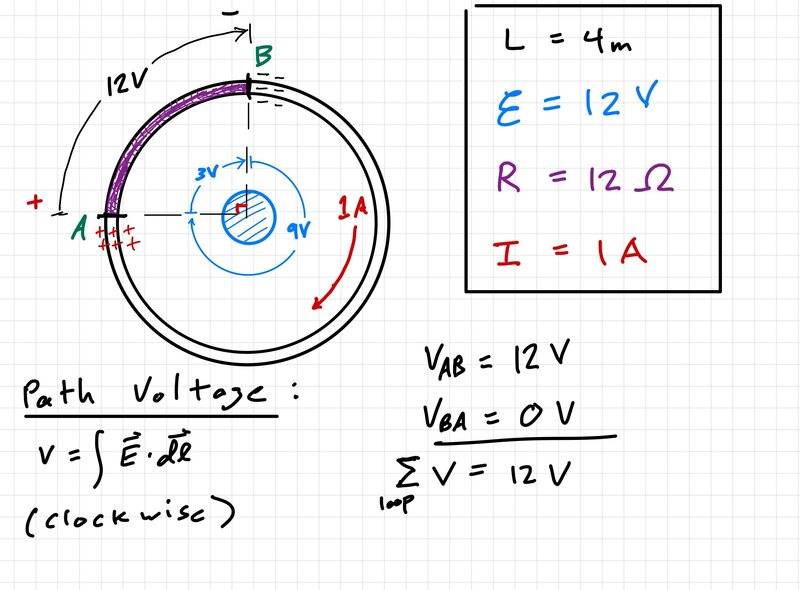 −
B
12V
3V
9V
1A
+
A
+ + +
+ + +
L = 4m
ℰ = 12 V
R = 12 Ω
I = 1 A
Path Voltage :
V = ∫ E⃗ · dℓ⃗
(clockwise)
V_AB = 12 V
V_BA = 0 V
∑ V = 12 V
loop